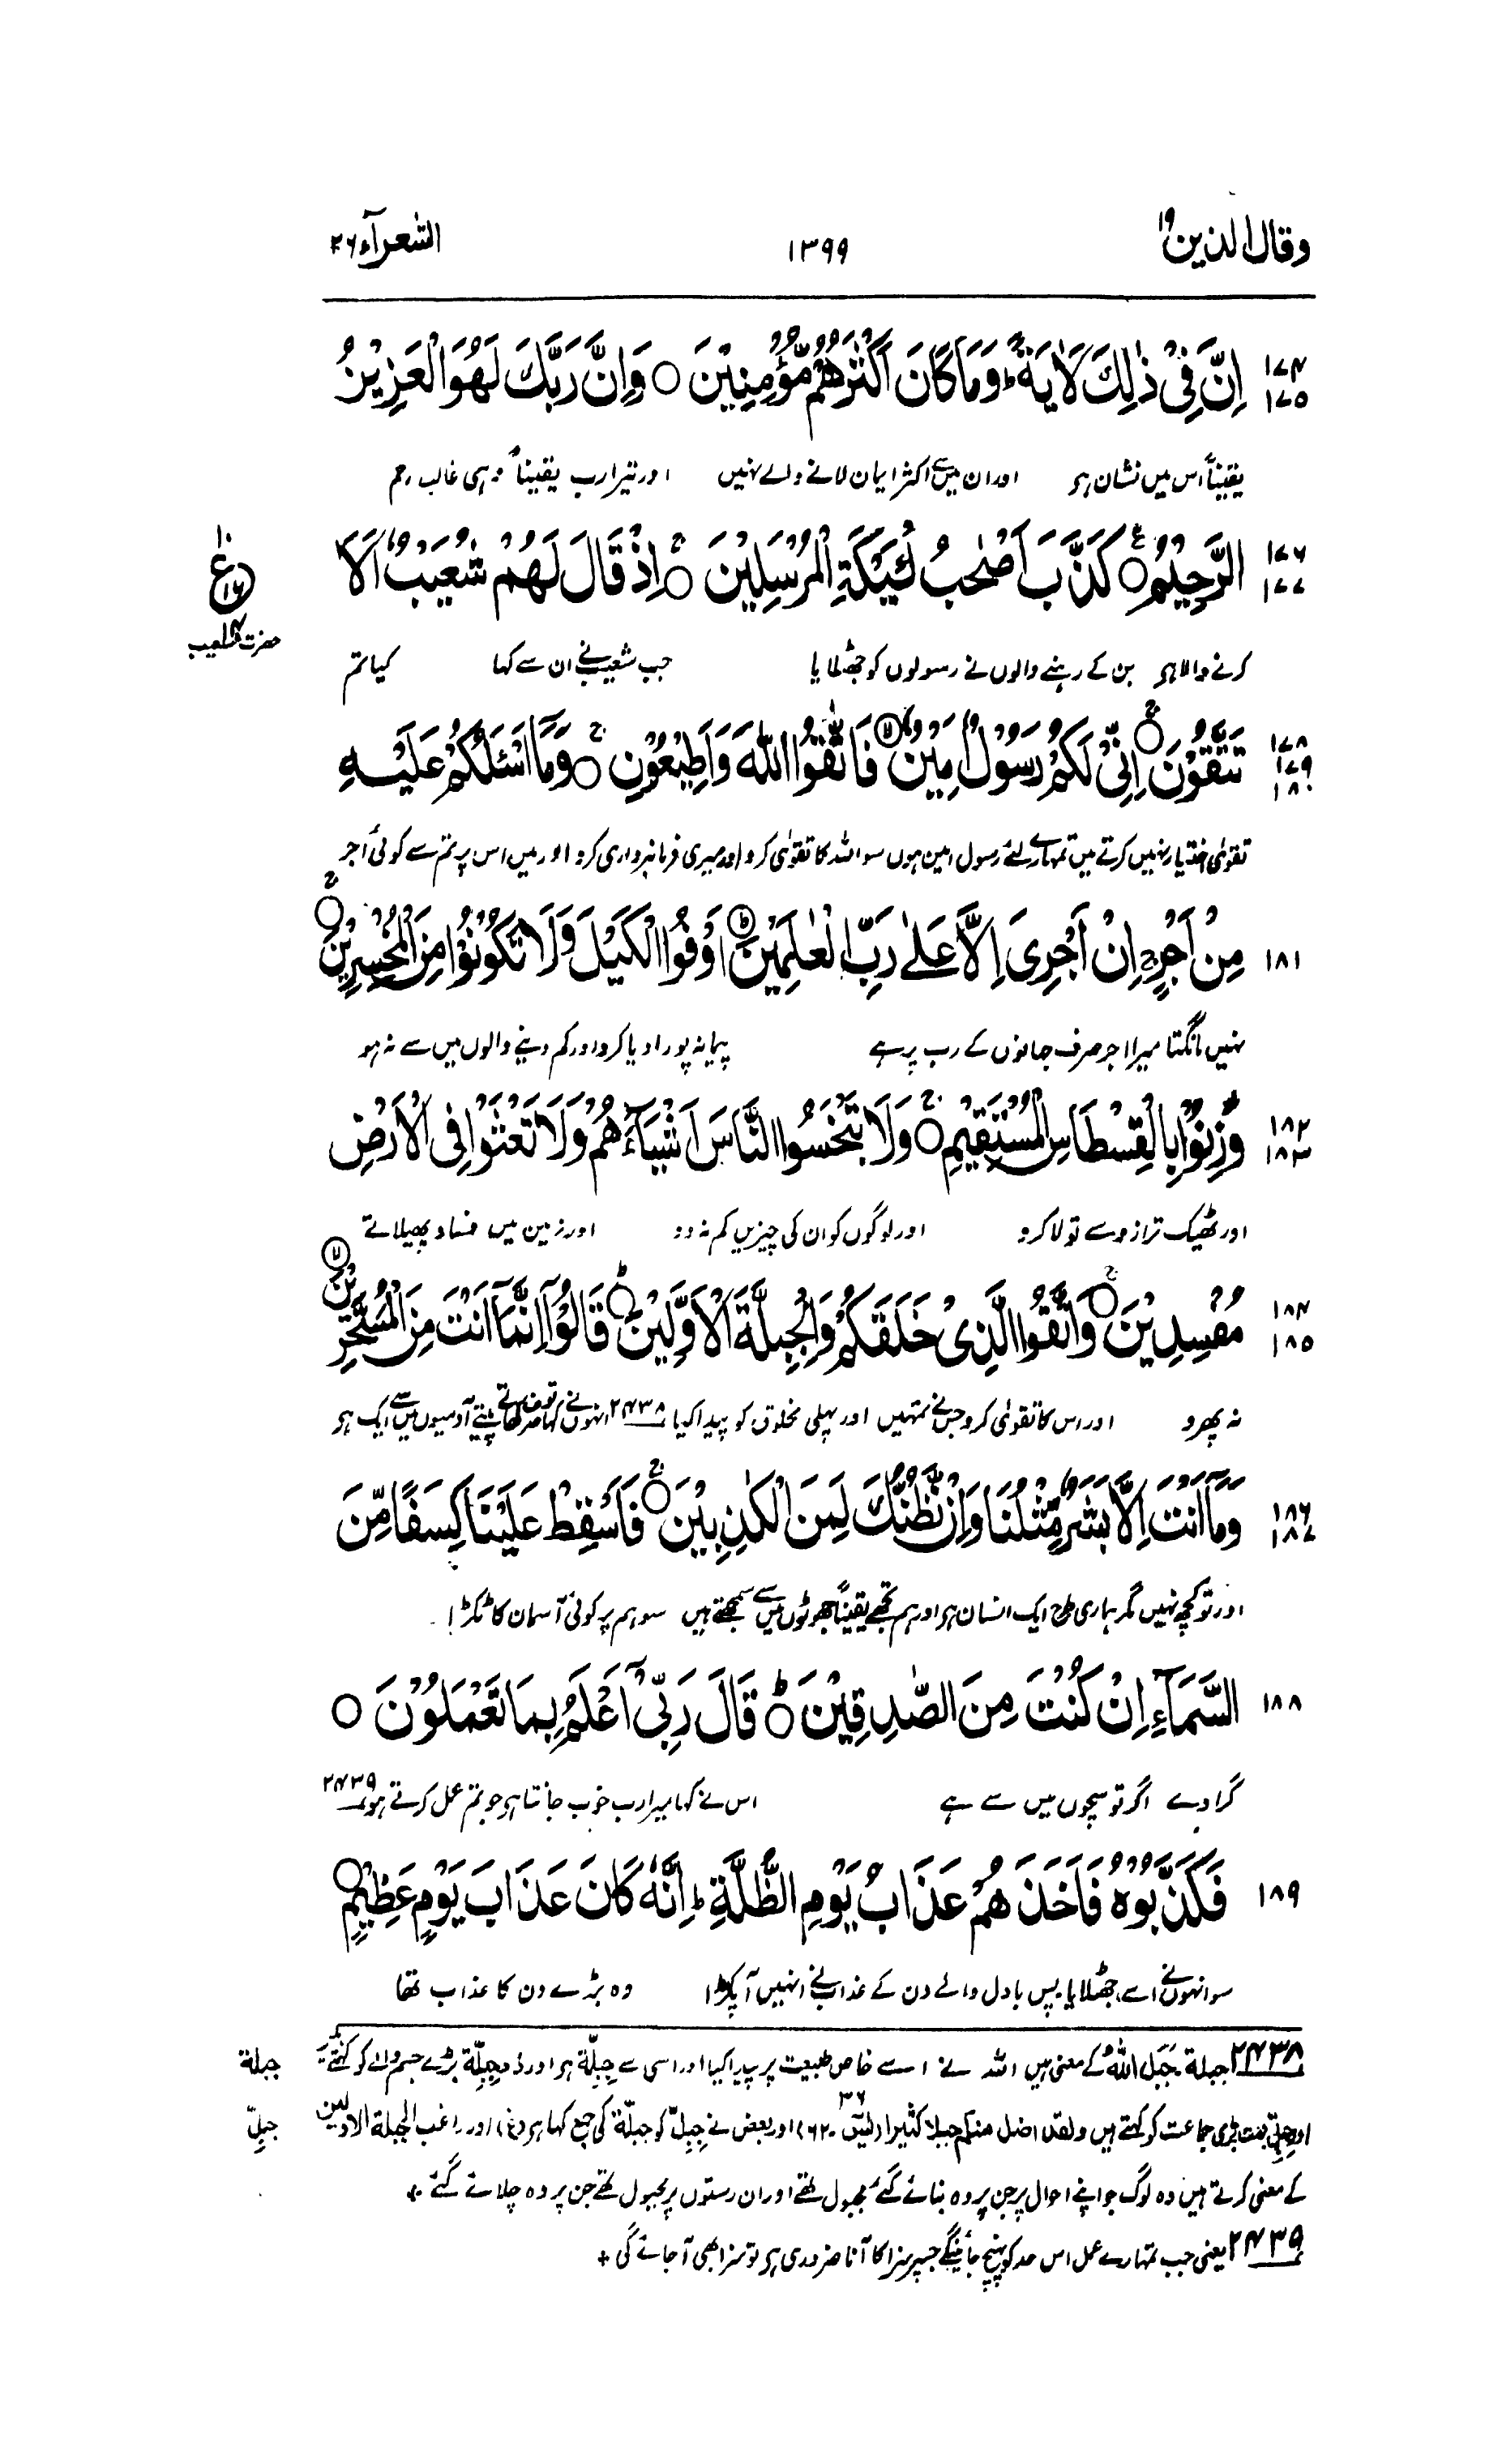 وقال الذین ۱۹ ۱۳۹۹ الشعرآء ۲۶
۱۷۴ ۱۷۵ اِنَّ فِیْ ذٰلِكَ لَاٰیَةً ؕ وَمَا كَانَ اَكْثَرُهُمْ مُّؤْمِنِیْنَ ○ وَاِنَّ رَبَّكَ لَهُوَ الْعَزِیْزُ
یقیناً اس میں نشان ہو اور ان میں سے اکثر ایمان لانے والے نہیں اور تیرا رب یقیناً وہی غالب رحم
۱۷۶ ۱۷۷ الرَّحِیْمُ ○ كَذَّبَ اَصْحٰبُ لْـَٔیْكَةِ الْمُرْسَلِیْنَ ○ اِذْ قَالَ لَهُمْ شُعَیْبٌ اَلَا
۱۰ ع ۱۴
حضرت شعیب
کرنے والا ہو بن کے رہنے والوں نے رسولوں کو جھٹلایا جب شعیب نے ان سے کہا کیا تم
۱۷۸ ۱۷۹ ۱۸۰ تَتَّقُوْنَ ○ اِنِّیْ لَكُمْ رَسُوْلٌ اَمِیْنٌ ○ فَاتَّقُوا اللّٰهَ وَاَطِیْعُوْنِ ○ وَمَآ اَسْـَٔلُكُمْ عَلَیْهِ
تقویٰ اختیار نہیں کرتے میں تمہارے لئے رسول امین ہوں سو اللہ کا تقویٰ کرو اور میری فرمانبرداری کرو اور میں اس پر تم سے کوئی اجر
۱۸۱ مِنْ اَجْرٍ ۚ اِنْ اَجْرِیَ اِلَّا عَلٰی رَبِّ الْعٰلَمِیْنَ ○ اَوْفُوا الْكَیْلَ وَلَا تَكُوْنُوْا مِنَ الْمُخْسِرِیْنَ ○
نہیں مانگتا میرا اجر صرف جہانوں کے رب پر ہے پیمانہ پورا دیا کرو اور کم دینے والوں میں سے نہ ہو
۱۸۲ ۱۸۳ وَزِنُوْا بِالْقِسْطَاسِ الْمُسْتَقِیْمِ ○ وَلَا تَبْخَسُوا النَّاسَ اَشْیَآءَهُمْ وَلَا تَعْثَوْا فِی الْاَرْضِ
اور ٹھیک ترازو سے تولا کرو اور لوگوں کو ان کی چیزیں کم نہ دو اور زمین میں فساد پھیلاتے
۱۸۴ ۱۸۵ مُفْسِدِیْنَ ○ وَاتَّقُوا الَّذِیْ خَلَقَكُمْ وَالْجِبِلَّةَ الْاَوَّلِیْنَ ○ قَالُوْٓا اِنَّمَآ اَنْتَ مِنَ الْمُسَحَّرِیْنَ ○
نہ پھرو اور اس کا تقویٰ کرو جس نے تمہیں اور پہلی مخلوق کو پیدا کیا ۲۴۳۸ انہوں نے کہا تو صرف کھاتے پیتے آدمیوں میں سے ایک ہو
۱۸۶ ۱۸۷ وَمَآ اَنْتَ اِلَّا بَشَرٌ مِّثْلُنَا وَاِنْ نَّظُنُّكَ لَمِنَ الْكٰذِبِیْنَ ○ فَاَسْقِطْ عَلَیْنَا كِسَفًا مِّنَ
اور تو کچھ نہیں مگر ہماری طرح ایک انسان ہو اور ہم تجھے یقیناً جھوٹوں میں سے سمجھتے ہیں سو ہم پر کوئی آسمان کا ٹکڑا
۱۸۸ السَّمَآءِ اِنْ كُنْتَ مِنَ الصّٰدِقِیْنَ ○ قَالَ رَبِّیْٓ اَعْلَمُ بِمَا تَعْمَلُوْنَ ○
گرا دے اگر تو سچوں میں سے ہے اس نے کہا میرا رب خوب جانتا ہو جو تم عمل کرتے ہو ۲۴۳۹
۱۸۹ فَكَذَّبُوْهُ فَاَخَذَهُمْ عَذَابُ یَوْمِ الظُّلَّةِ ؕ اِنَّهٗ كَانَ عَذَابَ یَوْمٍ عَظِیْمٍ ○
سو انہوں نے اسے جھٹلایا پس بادل والے دن کے عذاب نے انہیں آ پکڑا وہ بڑے دن کا عذاب تھا
۲۴۳۸ جبلة۔ جَبَلَ اللّٰهُ کے معنی ہیں اللہ نے اسے خاص طبیعت پر پیدا کیا اور اسی سے جِبِلّة ہو اور ذو جِبِلّة بڑے جسم والے کو کہتے ہیں جبلة
اور جِبِلّ بہت بڑی جماعت کو کہتے ہیں ولقد اضل منکم جبلا کثیرا (یٰسٓ ۳۶۔ ۶۲) اور بعض نے جِبِلّ کو جبلّة کی جمع کہا ہو (غ) اور راغب الجبلة الاولین جبلّ
کے معنی کرتے ہیں وہ لوگ جو اپنے احوال پر جن پر وہ بنائے گئے مجبول تھے اور ان رستوں پر مجبول تھے جن پر وہ چلائے گئے +
۲۴۳۹ یعنی جب تمہارے عمل اس حد کو پہنچ جائینگے جس پر سزا کا آنا ضروری ہو تو سزا بھی آ جائے گی +